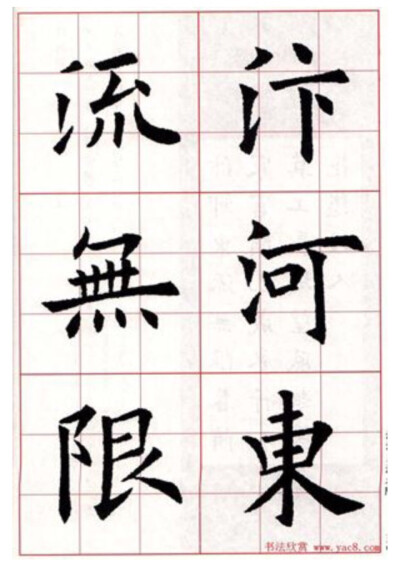 汴河東
流無限
书法欣赏 www.yac8.com